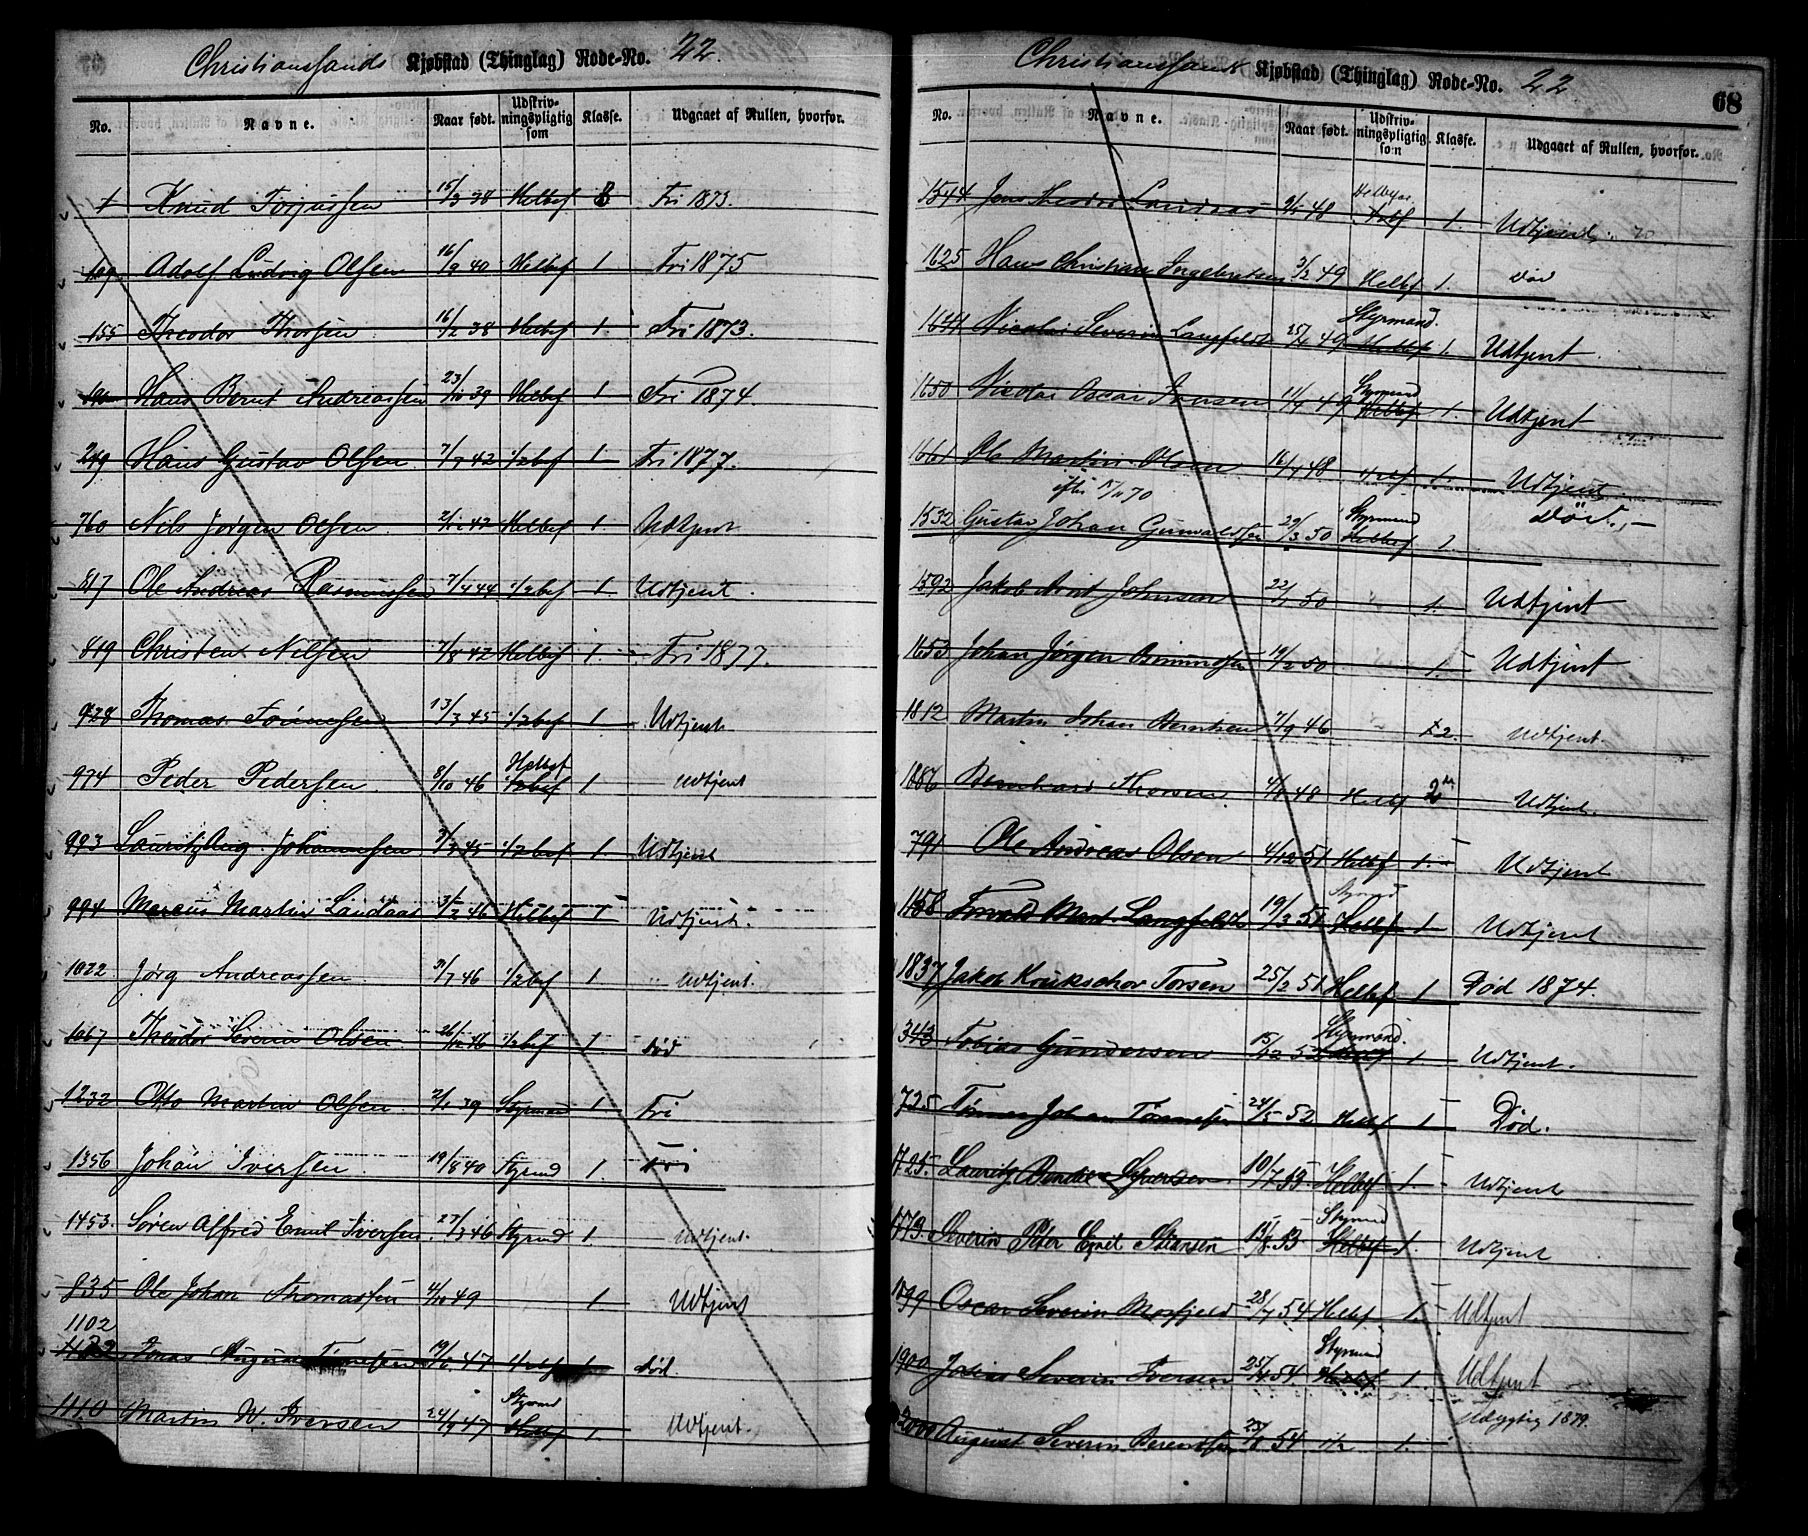 Christianssands Kjøbstad (Thinglag) Rode-No. 22.
No. Navne. Naar født. Udskrivningspligtig som Klasse. Udgaaet af Rullen, hvorfor.
1 Knud Torjussen 15/3 38 Helbef Fri 1873.
109 Adolf Ludvig Olsen 16/9 40 Helbef 1. Fri 1875
155 Theodor Thorsen 16/2 38 Helbef 1. Fri 1873.
Hans Bernt Andreassen 23/10 39 Helbef 1. Fri 1874.
249 Hans Gustav Olsen 7/7 42 1/2bef 1. Fri 1877.
760 Nils Jørgen Olsen 42 Helbef 1. Udtjent
817 Ole Andreas Rasmussen 7/4 44 1/2bef 1. Udtjent.
819 Christen Nilsen 7/8 42 Helbef 1. Fri 1877.
928 Thomas Tønnesen 13/3 45 1/2bef 1. Udtjent
Helbef
974 Peder Pedersen 8/10 46 1/2bef 1. Udtjent
993 Lauritz Aug. Johannesen 45 1/2bef 1. Udtjent
994 Marcus Martin Landaas 3/2 46 Helbef 1 Udtjent.
1022 Jørg Andreassen 7 46 1/2bef 1 Udtjent.
1067 Theodor Severin Olsen 26/10 46 1/2bef 1. død
1232 Otto Martin Olsen 39 Styrmand 1. Fri
1356 Johan Iversen 19/8 40 Styrmd 1. Fri
1453. Søren Alfred Emil Iversen 27/3 46 Styrmd 1. Udtjent.
835 Ole Johan Thomassen 4/10 49 1 Udtjent
1102
Jonas August Tønnesen 47 1. død.
Styrmd
1110 Martin W. Iversen 24/9 47 Helbef 1. Udtjent.
Christianssands Kjøbstad (Thinglag) Rode-No. 22. 68
No. Navne. Naar født. Udskrivningspligtig som Klasse. Udgaaet af Rullen, hvorfor.
1544 Jens Theodor Landaas 48 1. Udtjent.
1625 Hans Christian Ingebretsen 3/2 49 Helbf 1. død
Styrmand.
1644 Nicolai Severin Langfeldt 25/6 49 Helbef 1. Udtjent
Styrmand
1650 Nicolai Oscar Iversen 11/4 49 Helbef 1. Udtjent
1661 Ole Martin Olsen 16/4 48 1. Udtjent
70 Styrmand
1532 Gustav Johan Gunvaldsen 29/3 50 Helbef 1 Død.
1592 Jakob Johnsen 22/1 50 1. Udtjent
1653 Johan Jørgen 19/2 50 1. Udtjent
1812 Martin Johan Berntsen 7/9 46 2. Udtjent.
1886 Bernhard Thorsen 48 Helbf 2 Udtjent.
791 Ole Andreas Olsen 4/12 51 Helbef 1. Udtjent
Styrmd
1158 Torvald Mart. Langfeldt 19/3 51 Helbf 1 Udtjent
1837 Jakob Torsen 25/2 51 Helbf 1 Død 1874.
Styrmand.
343 Tobias Gundersen 15/12 52 Helbf 1. Udtjent.
725 Tønnes Johan Tønnesen 24/5 52 Helbf 1 Død.
1725. Lauritz 10/7 53 Helbf 1 Udtjent
Styrmd
1773. Severin Peter Emil 13/8 53 Helbf 1. Udtjent
1899 Oscar Severin Mosfjeld 28/7 54 Helbf 1. Udtjent
Styrmd
1900 Josias Severin Iversen 25/4 54. Helbf 1. Udtjent
2000 August Severin Berentsen 23/8 54 1/2 1. Udygtig 1879.